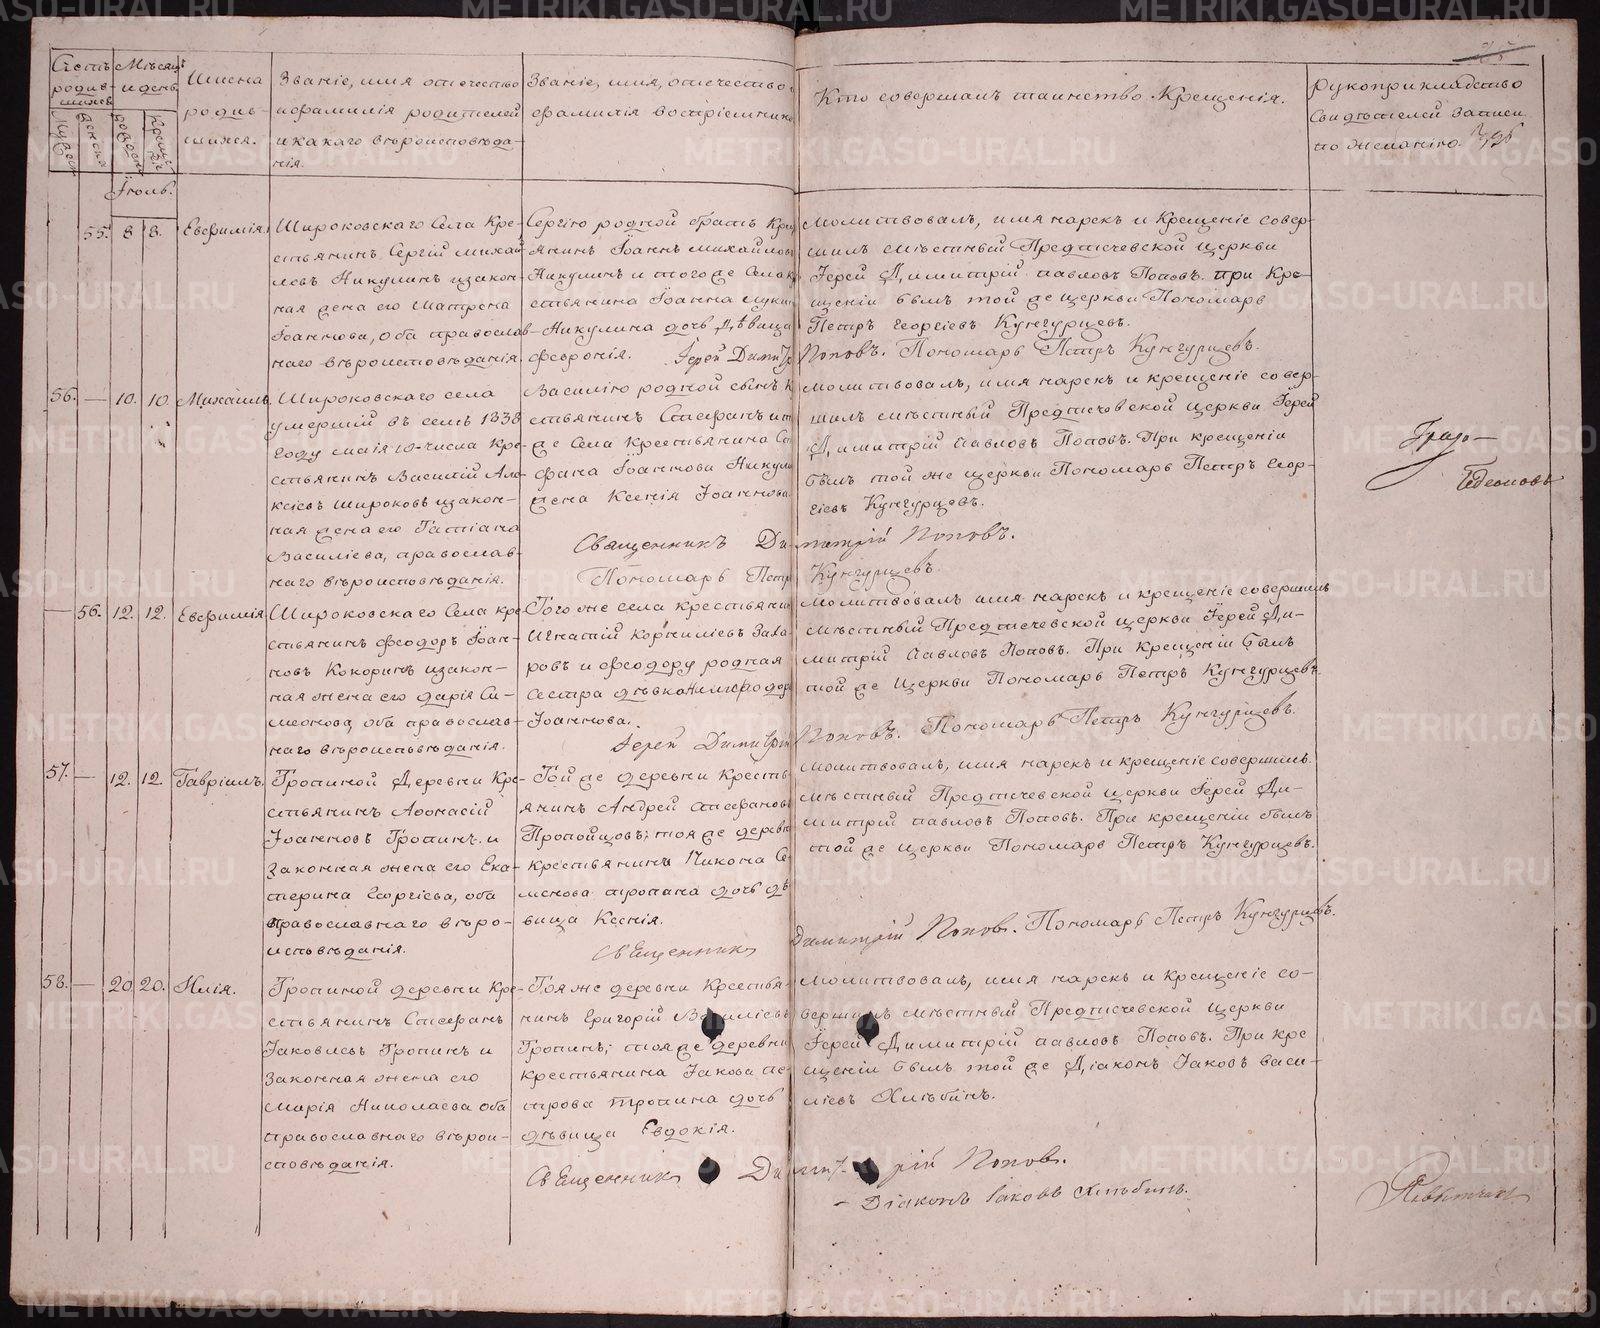 Счетъ родив-шихся
Мѣсяцъ и день
Имена родив-шихся.
Званіе, имя отчество и фамилія родителей и какаго вѣроисповѣда-нія.
Званіе, имя, отчество и фамилія воспріемника
Кто совершалъ таинство Крещенія.
Рукоприкладство Свидѣтелей Записи по желанію
Іюль.
55. 8. 8. Евѳимія.
Широковскаго Села Кре-
стьянинъ Сергій Михай-
ловъ Никулинъ и закон-
ная жена его Матрона
Іоаннова, оба православ-
наго вѣроисповѣданія.
Сергію родной братъ Кре
янинъ Іоаннъ Михайловъ
Никулинъ и того же Села к
естьянина Іоанна Луки
Никулина дочь дѣвица
Февронія. Іерей Димитр
Молитвовалъ, имя нарекъ и Крещеніе совер-
шилъ мѣстный Предтечевской церкви
Іерей Димитрій Павловъ Поповъ. при Кре-
щеніи былъ той же церкви Пономарь
Петръ Георгіевъ Кунгурцевъ.
Поповъ. Пономарь Петръ Кунгурцевъ.
56. — 10. 10. Михаилъ.
Широковскаго села
умершій въ семъ 1838
году маія 10-числа Кре-
стьянинъ Василій Але-
ксіевъ Широковъ и закон-
ная жена его Татіана
Василіева, православ-
наго вѣроисповѣданія.
Василію родной сынъ к
стьянинъ Стефанъ и т
же Села Крестьянина Ст
фана Іоаннова Никули
жена Ксенія Іоаннова
Священникъ Ди
Пономарь Петр
Молитвовалъ, имя нарекъ и крещеніе совер-
шилъ мѣстный Предтечевской церкви Іерей
Димитрій Павловъ Поповъ. При крещеніи
былъ той же церкви Пономарь Петръ Геор-
гіевъ Кунгурцевъ.
митрій Поповъ.
Кунгурцевъ.
— 56. 12. 12. Евѳимія
Широковскаго Села кре-
стьянинъ Феодоръ Іоан-
новъ Кокоринъ и закон-
ная жена его Дарія Си-
меонова, оба православ-
наго вѣроисповѣданія.
Того же села крестьяни
Игнатій Корниліевъ Заха-
ровъ и Феодору родная
сестра дѣвка
Іоаннова.
Іерей Димитрій
Молитвовалъ имя нарекъ и крещеніе совершилъ
мѣстный Предтечевской церкви Іерей Ди-
митрій Павловъ Поповъ. При крещеніи былъ
той же церкви Пономарь Петръ Кунгурцевъ.
Поповъ. Пономарь Петръ Кунгурцевъ.
57. — 12. 12. Гавріилъ.
Тропиной Деревни Кре-
стьянинъ Аѳонасій
Іоанновъ Тропинъ и
законная жена его Ека-
терина Георгіева, оба
православнаго вѣро-
исповѣданія.
Той же деревни Кресть
янинъ Андрей Стефановъ
Пропойцовъ; тоя же деревн
крестьянина Никона Се
менова Тропина дочь дѣ
вица Ксенія.
Священникъ
Молитвовалъ, имя нарекъ и крещеніе совершилъ.
мѣстный Предтечевской церкви Іерей Ди-
митрій Павловъ Поповъ. При крещеніи былъ
той же церкви Пономарь Петръ Кунгурцевъ.
Димитрій Поповъ. Пономарь Петръ Кунгурцевъ.
58. — 20. 20. Илія.
Тропиной деревни Кре-
стьянинъ Стефанъ
Іаковлевъ Тропинъ и
Законная жена его
Марія Николаева оба
православнаго вѣрои-
сповѣданія.
Тоя же деревни Крестья-
нинъ Григорій Василіевъ
Тропинъ; тоя же деревни
крестьянина Іакова Пе-
трова Тропина дочь
дѣвица Евдокія.
Священникъ Ди
Молитвовалъ, имя нарекъ и крещеніе со-
вершилъ мѣстный Предтечевской церкви
Іерей Димитрій Павловъ Поповъ. При кре
щеніи былъ той же Діаконъ Іаковъ Васи-
ліевъ Хлѣбинъ.
митрій Поповъ.
— Діаконъ Іаковъ Хлѣбинъ.
METRIKI.GASO-URAL.RU